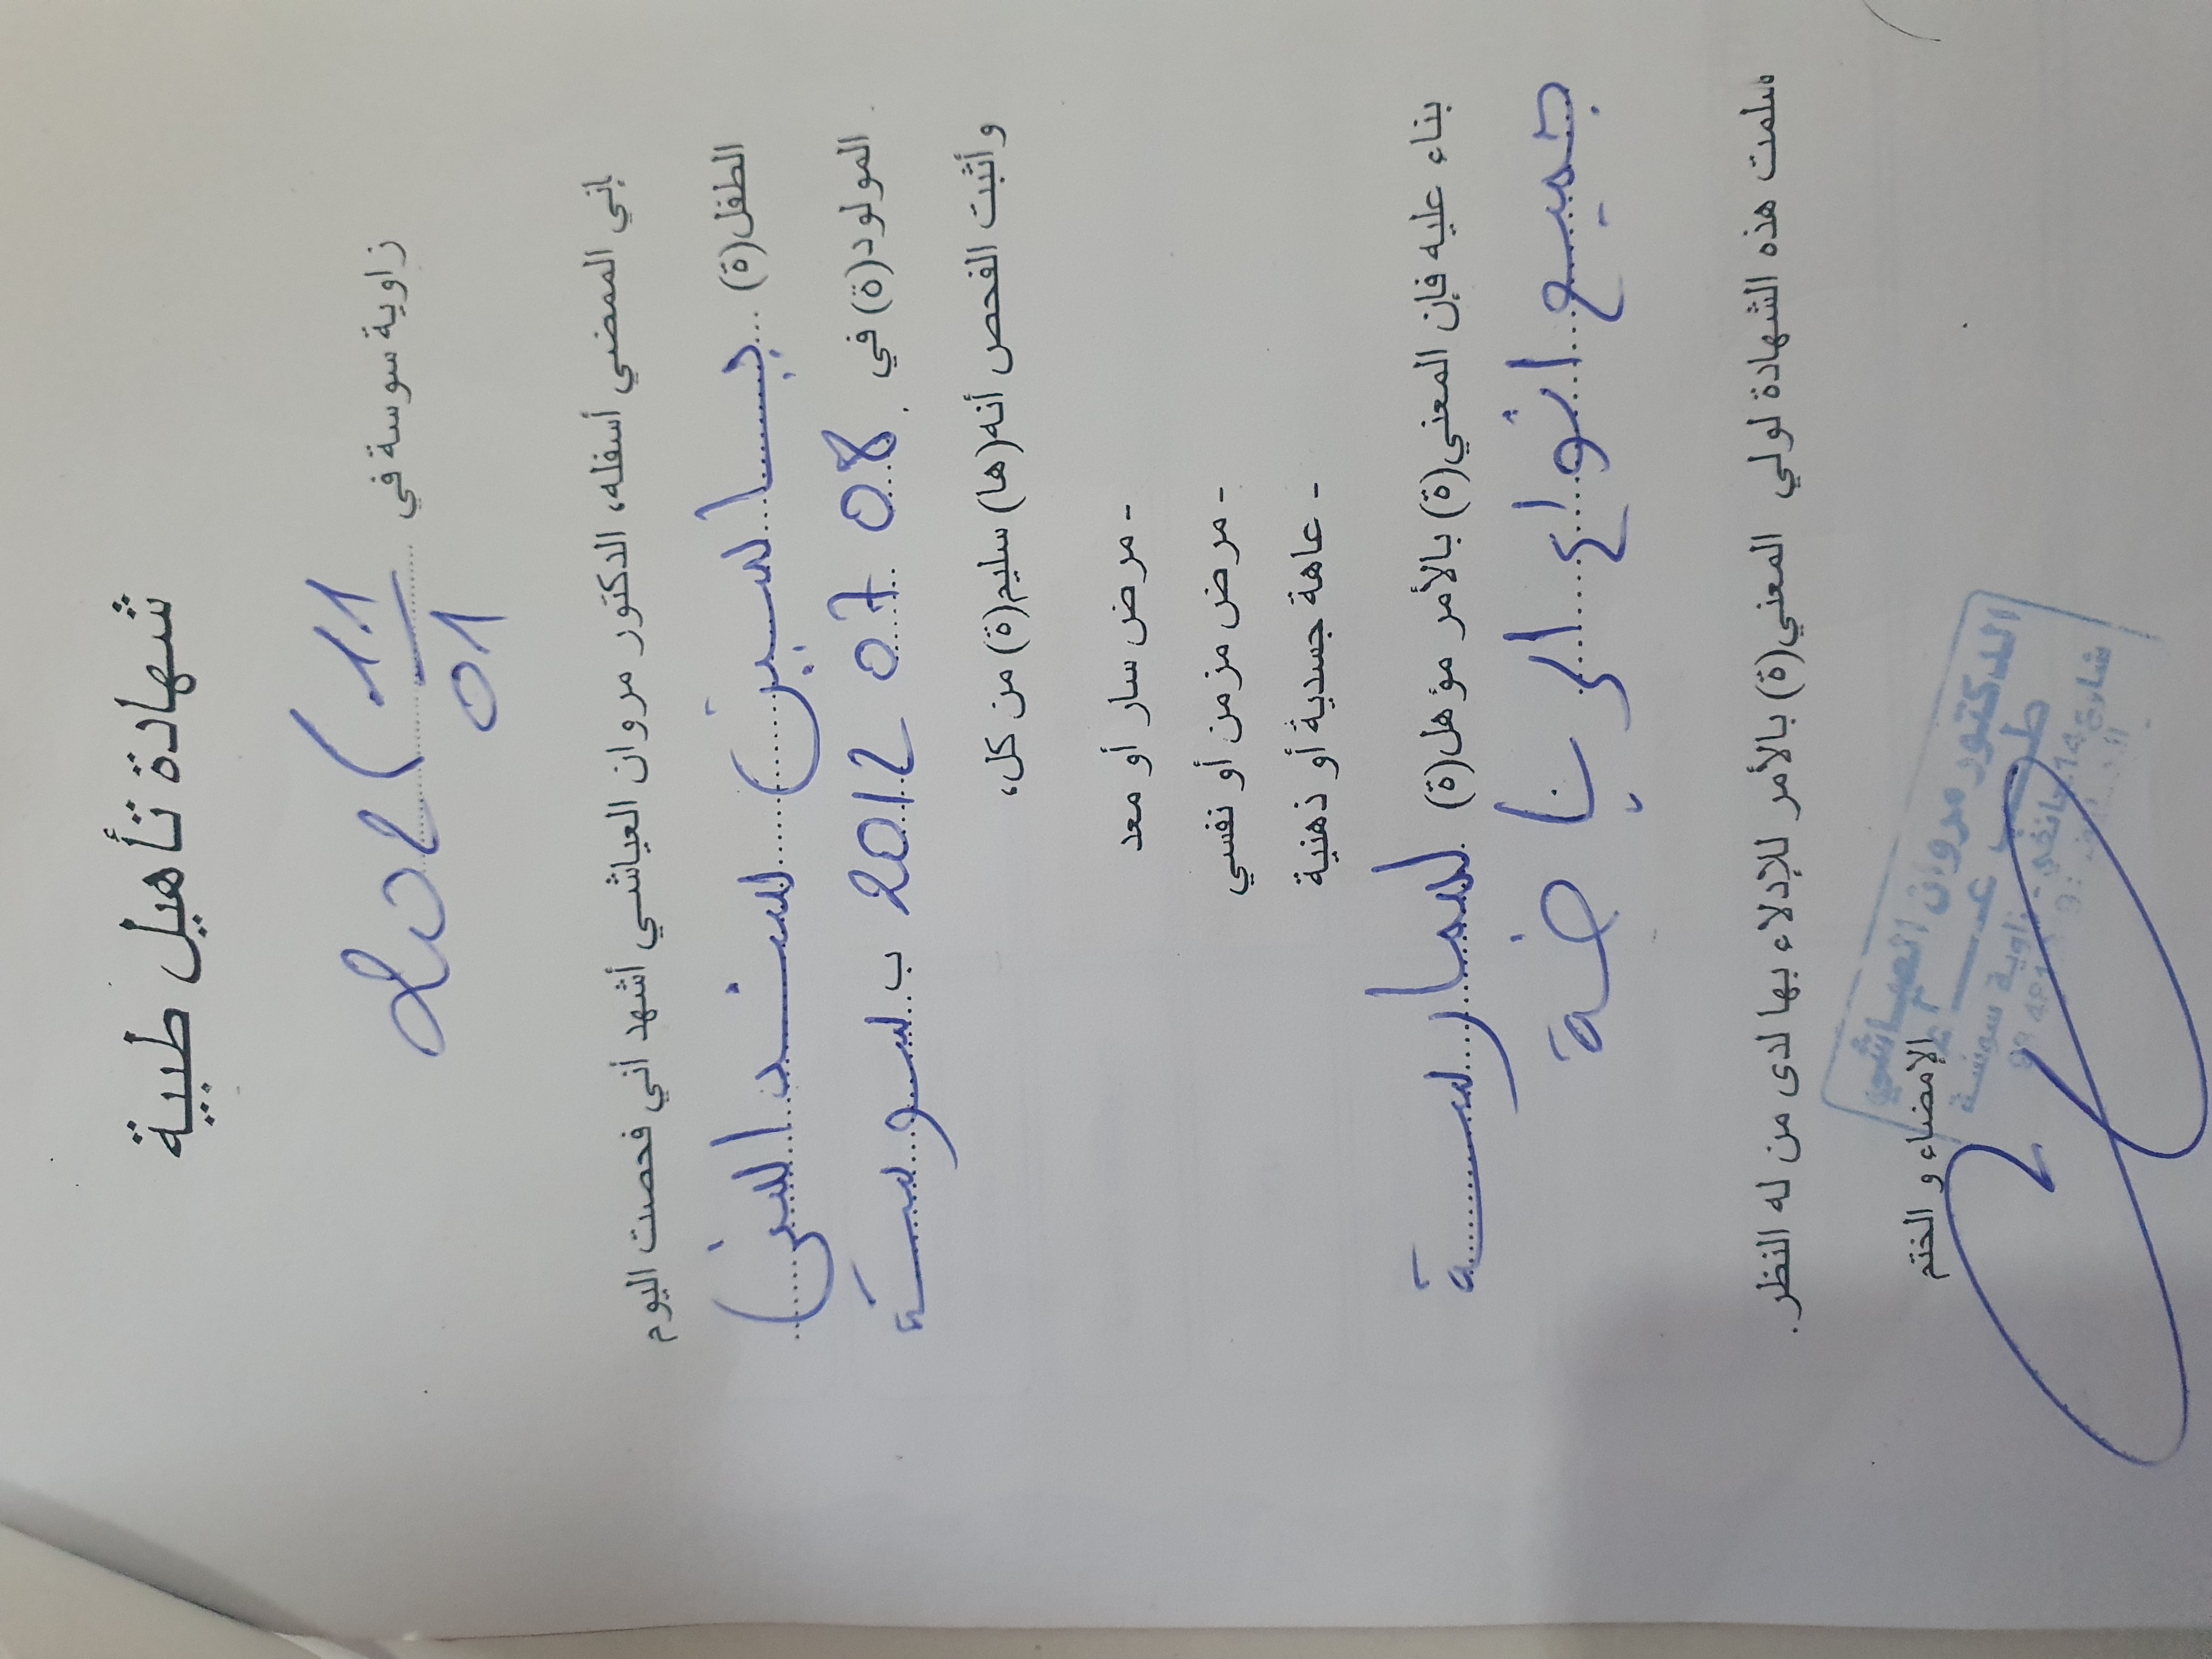 شهادة تأهيل طبية
زاوية سوسة في 11/01
إني الممضي أسفله، الدكتور مروان العياشي أشهد أني فحصت اليوم
الطفل(ة) ... ياسين سند
المولود(ة) في 08 07 2012 ب سوسة
و أثبت الفحص أنه(ها) سليم(ة) من كل،
- مرض سار أو معد
- مرض مزمن أو نفسي
- عاهة جسدية أو ذهنية
بناء عليه فإن المعني(ة) بالأمر مؤهل(ة) لممارسة
جميع انواع الرياضة
سلمت هذه الشهادة لولي المعني(ة) بالأمر للإدلاء بها لدى من له النظر.
الإمضاء و الختم
الدكتور مروان العياشي
زاوية سوسة